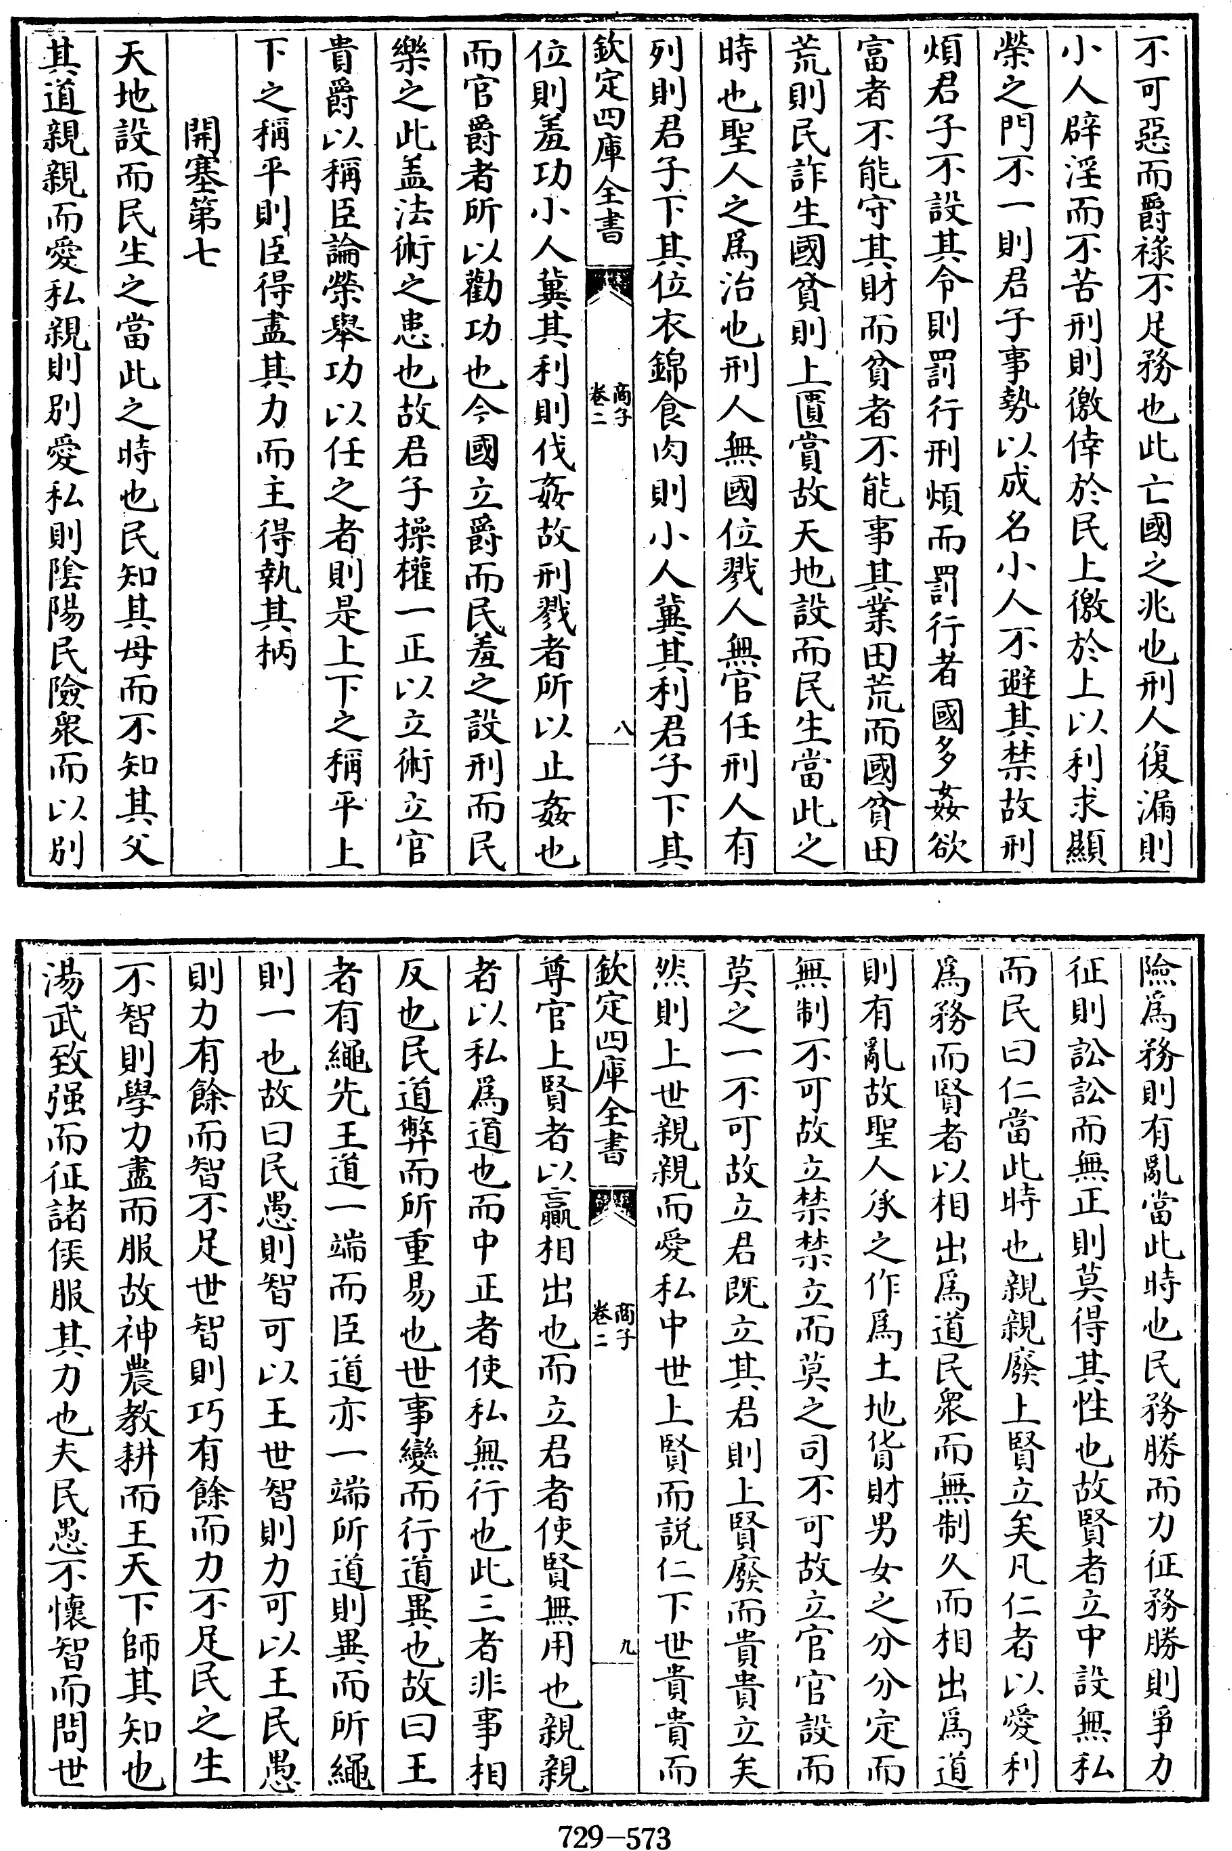 不可惡而爵祿不足務也此亡國之兆也刑人復漏則
小人辟淫而不苦刑則徼倖於民上徼於上以利求顯
榮之門不一則君子事勢以成名小人不避其禁故刑
煩君子不設其令則罰行刑煩而罰行者國多姦欲
富者不能守其財而貧者不能事其業田荒而國貧田
荒則民詐生國貧則上匱賞故天地設而民生當此之
時也聖人之爲治也刑人無國位戮人無官任刑人有
列則君子下其位衣錦食肉則小人冀其利君子下其
欽定四庫全書 商子卷二 八
位則羞功小人冀其利則伐姦故刑戮者所以止姦也
而官爵者所以勸功也今國立爵而民羞之設刑而民
樂之此盖法術之患也故君子操權一正以立術立官
貴爵以稱臣論榮舉功以任之者則是上下之稱平上
下之稱平則臣得盡其力而主得執其柄
開塞第七
天地設而民生之當此之時也民知其母而不知其父
其道親親而愛私親則別愛私則陰陽民險衆而以別
險爲務則有亂當此時也民務勝而力征務勝則爭力
征則訟訟而無正則莫得其性也故賢者立中設無私
而民曰仁當此時也親親廢上賢立矣凡仁者以愛利
爲務而賢者以相出爲道民衆而無制久而相出爲道
則有亂故聖人承之作爲土地貨財男女之分分定而
無制不可故立禁禁立而莫之司不可故立官官設而
莫之一不可故立君既立其君則上賢廢而貴貴立矣
然則上世親親而愛私中世上賢而說仁下世貴貴而
欽定四庫全書 商子卷二 九
尊官上賢者以贏相出也而立君者使賢無用也親親
者以私爲道也而中正者使私無行也此三者非事相
反也民道弊而所重易也世事變而行道異也故曰王
者有繩先王道一端而臣道亦一端所道則異而所繩
則一也故曰民愚則智可以王世智則力可以王民愚
則力有餘而智不足世智則巧有餘而力不足民之生
不智則學力盡而服故神農教耕而王天下師其知也
湯武致强而征諸侯服其力也夫民愚不懷智而問世
729-573